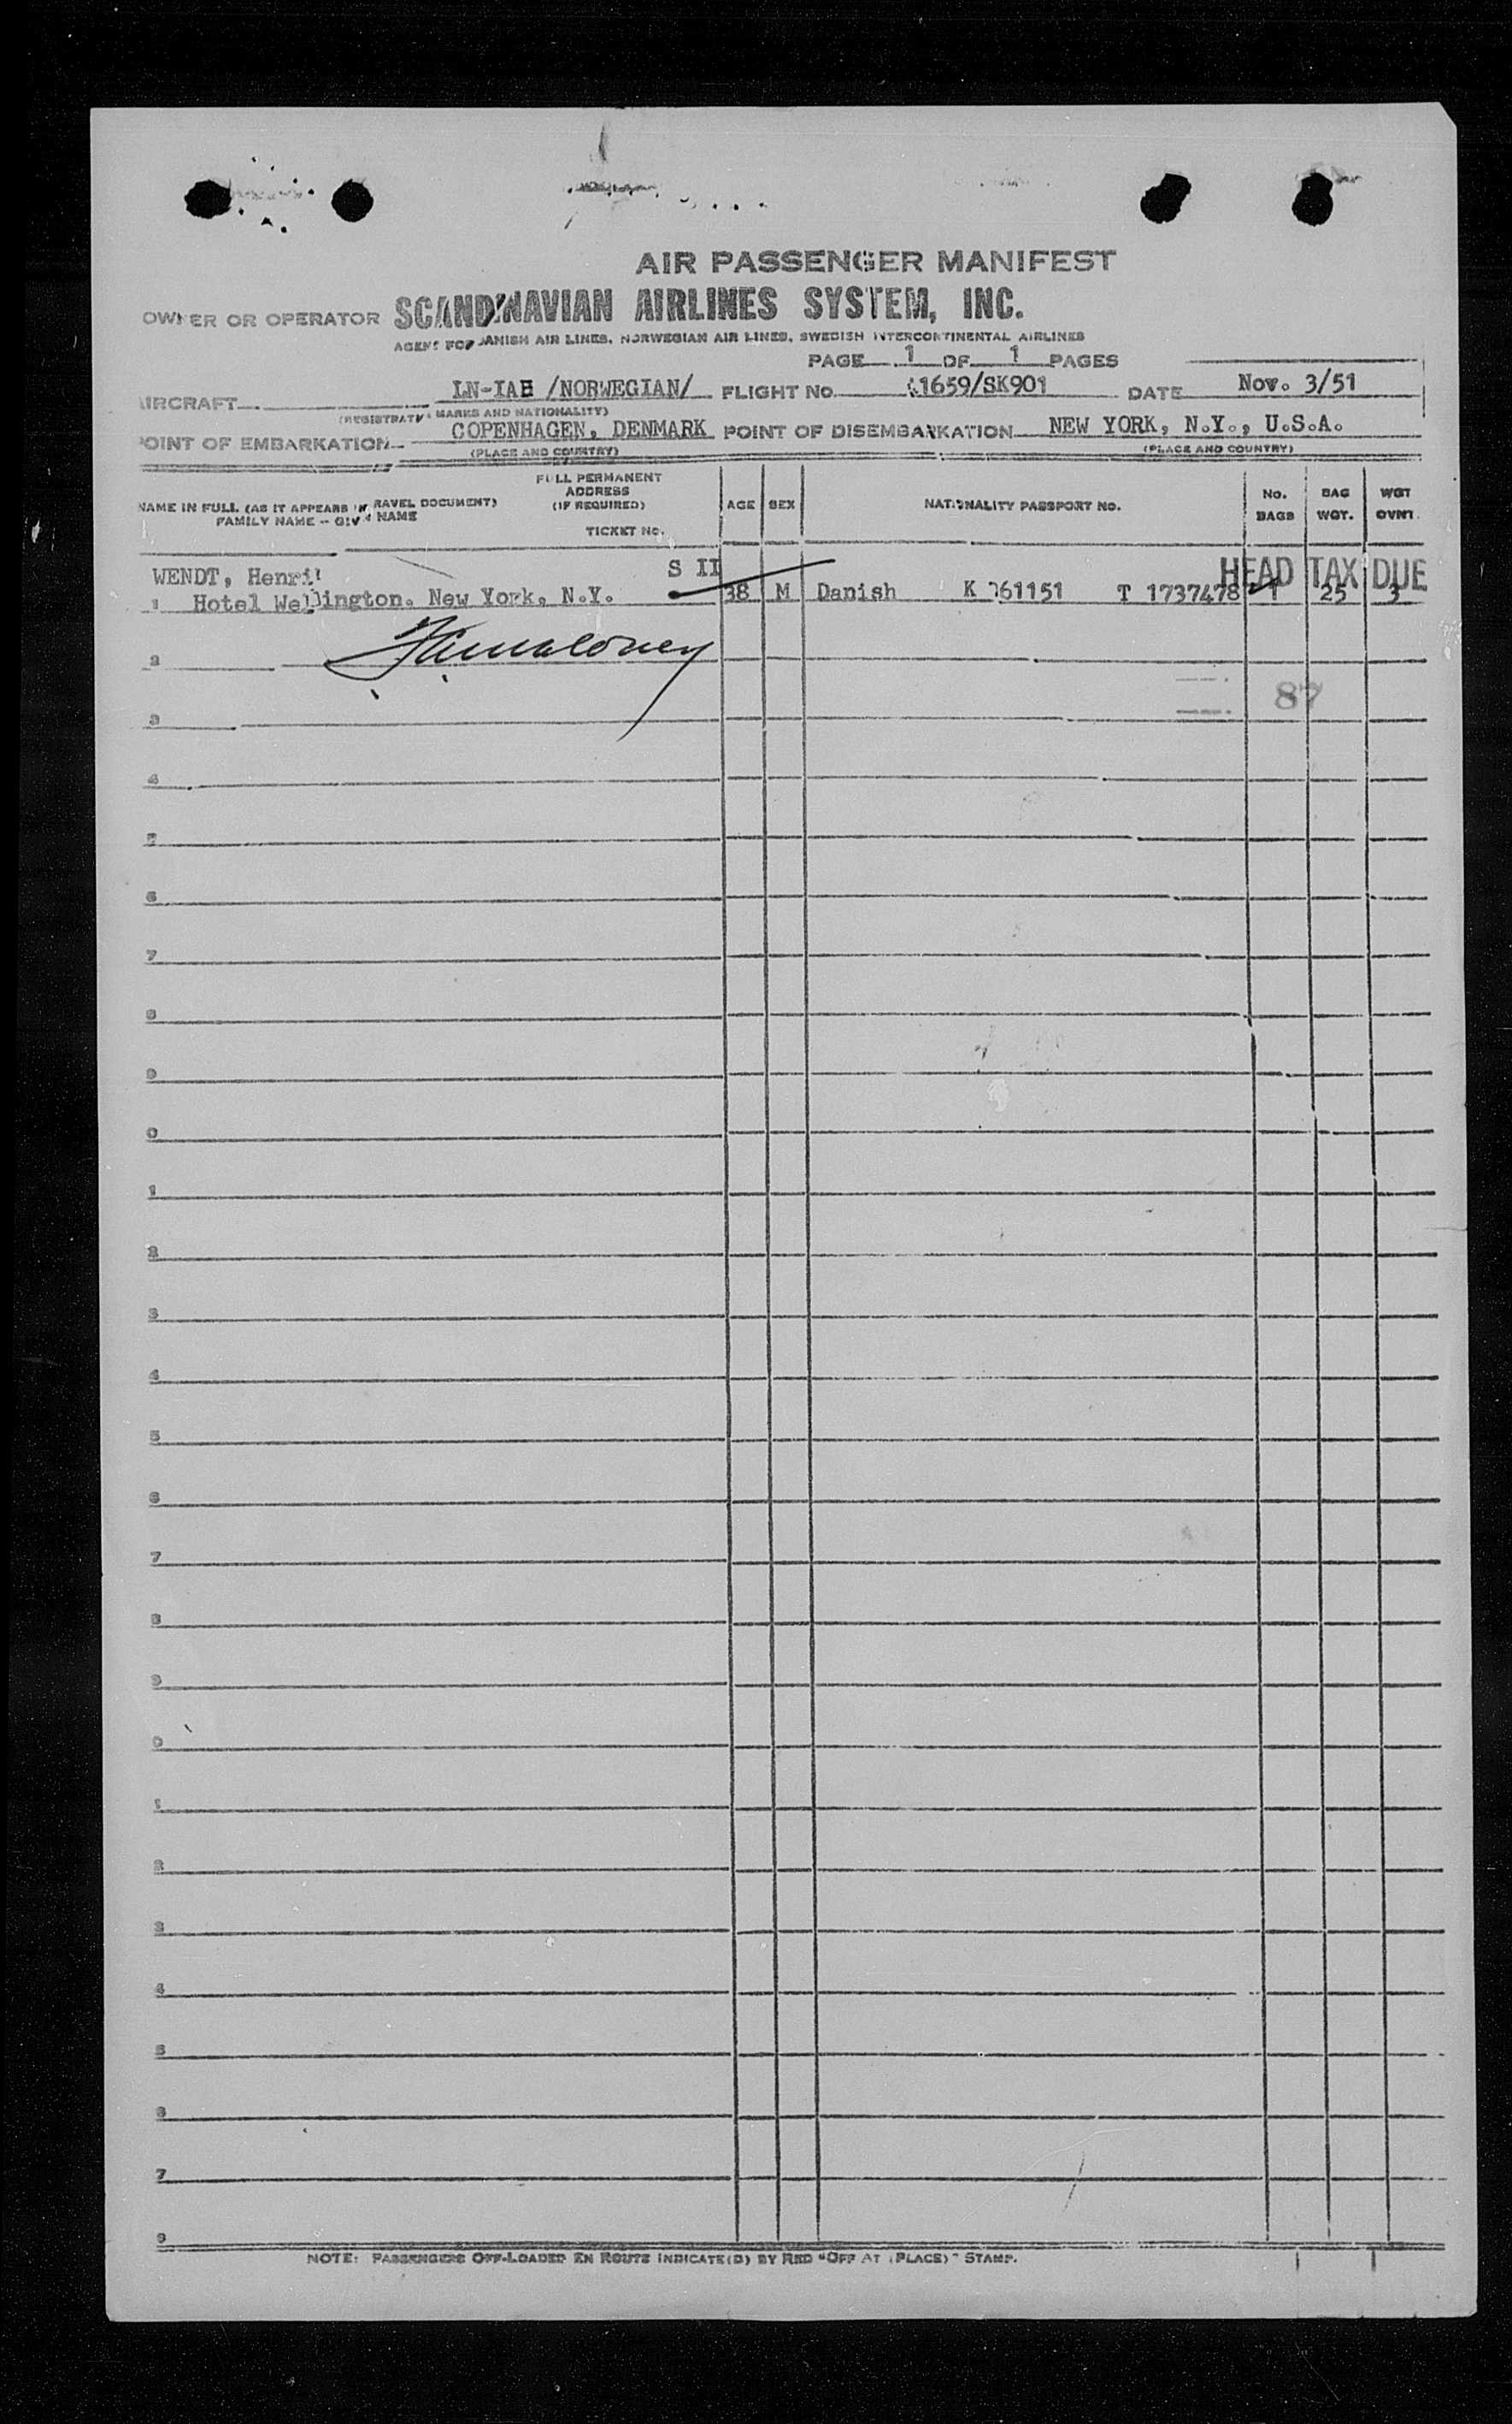 AIR PASSENGER MANIFEST
OWNER OR OPERATOR SCANDINAVIAN AIRLINES SYSTEM, INC.
AGENT FOR DANISH AIR LINES, NORWEGIAN AIR LINES, SWEDISH INTERCONTINENTAL AIRLINES
PAGE 1 OF 1 PAGES
AIRCRAFT LN-IAE /NORWEGIAN/ FLIGHT NO. 1659/SK901 DATE Nov. 3/51
(REGISTRATION MARKS AND NATIONALITY)
POINT OF EMBARKATION COPENHAGEN, DENMARK POINT OF DISEMBARKATION NEW YORK, N.Y., U.S.A.
(PLACE AND COUNTRY) (PLACE AND COUNTRY)
NAME IN FULL (AS IT APPEARS IN TRAVEL DOCUMENT) FAMILY NAME -- GIVEN NAME
FULL PERMANENT ADDRESS (IF REQUIRED) TICKET NO.
AGE SEX NATIONALITY PASSPORT NO. No. BAGS BAG WGT. WGT OVNT.
WENDT, Henrik S II HEAD TAX DUE
1 Hotel Wellington, New York, N.Y. 38 M Danish K 061151 T 1737478 1 25 3
2
3 87
4
5
6
7
8
9
0
1
2
3
4
5
6
7
8
9
0
1
2
3
4
5
6
7
NOTE: PASSENGERS OFF-LOADED EN ROUTE INDICATE(D) BY RED "OFF AT (PLACE)" STAMP.